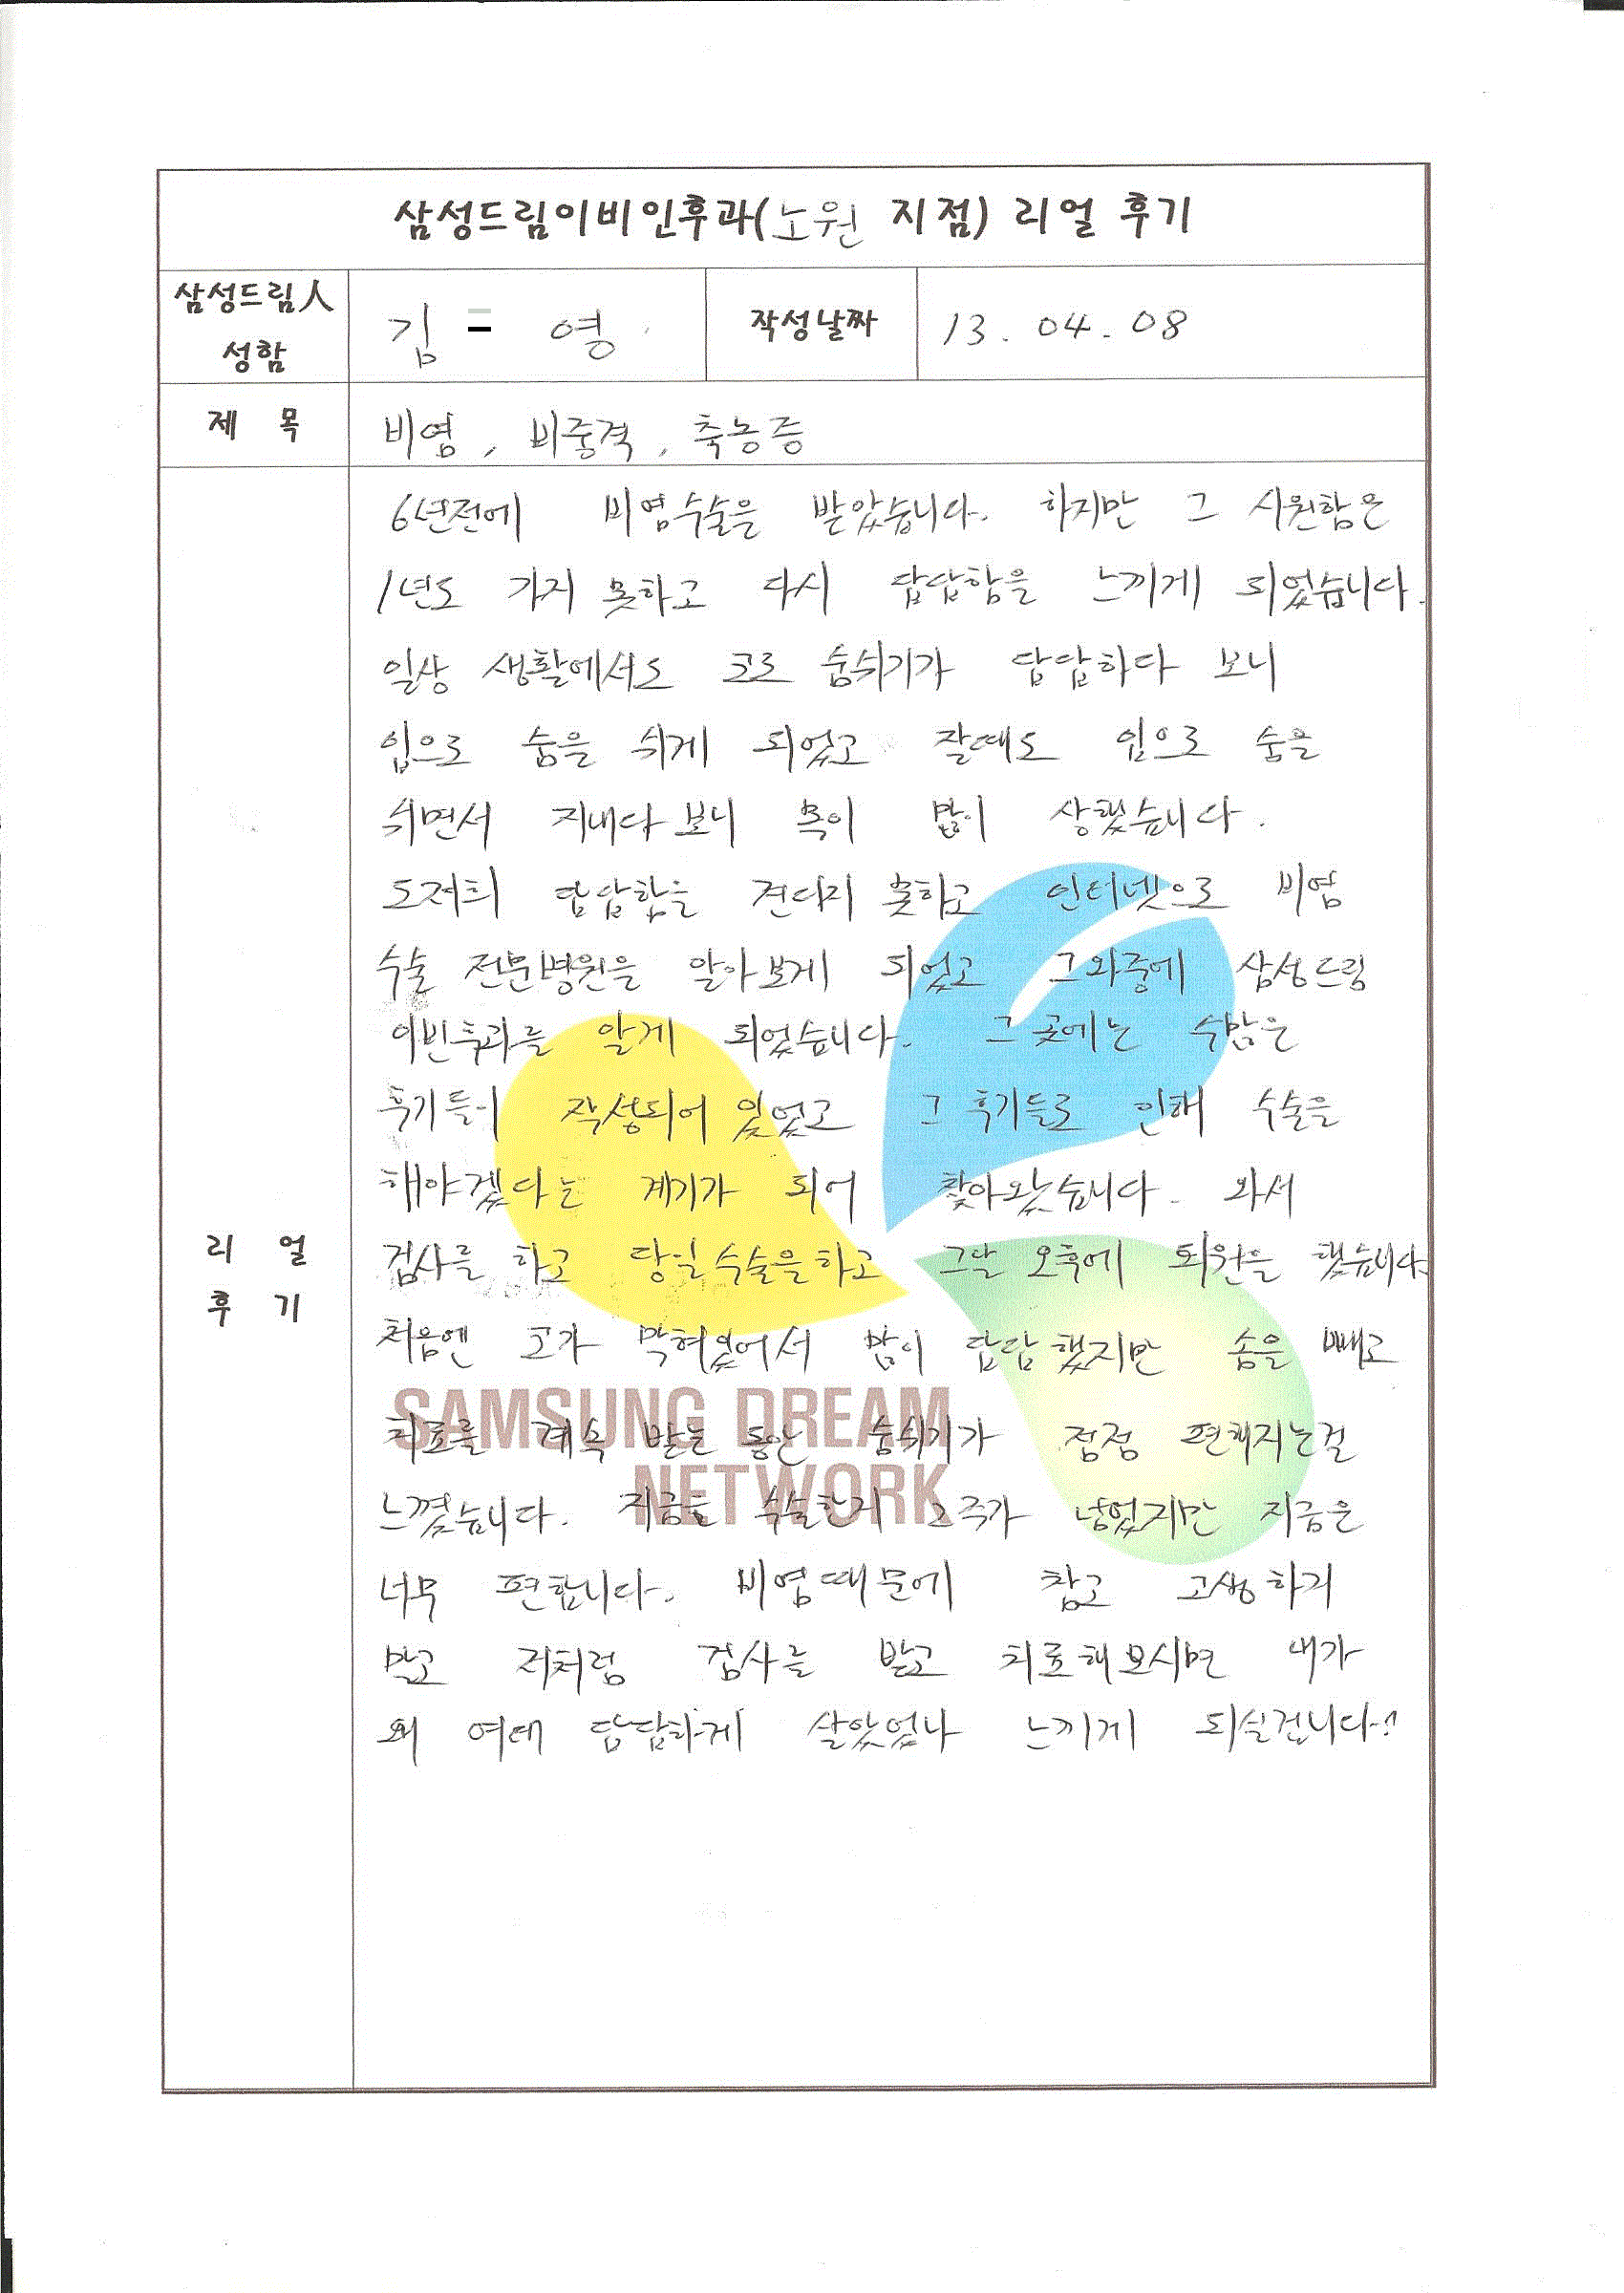 삼성드림이비인후과(노원 지점) 리얼 후기
삼성드림人 성함
김 영
작성날짜
13. 04. 08
제 목
비염, 비중격, 축농증
리 얼 후 기
6년전에 비염수술을 받았습니다. 하지만 그 시원함은
1년도 가지 못하고 다시 답답함을 느끼게 되었습니다.
일상 생활에서도 코로 숨쉬기가 답답하다 보니
입으로 숨을 쉬게 되었고 잘때도 입으로 숨을
쉬면서 지내다 보니 목이 많이 상했습니다.
도저희 답답함을 견디지 못하고 인터넷으로 비염
수술 전문병원을 알아보게 되었고 그와중에 삼성드림
이빈후과를 알게 되었습니다. 그곳에는 수많은
후기들이 작성되어 있었고 그 후기들로 인해 수술을
해야겠다는 계기가 되어 찾아왔습니다. 와서
검사를 하고 당일수술을하고 그날 오후에 퇴원을 했습니다
처음엔 코가 막혀있어서 많이 답답했지만 솜을 빼고
치료를 계속 받는 동안 숨쉬기가 점점 편해지는걸
느꼈습니다. 지금은 수술한지 2주가 넘었지만 지금은
너무 편합니다. 비염때문에 참고 고생하지
말고 저처럼 검사를 받고 치료해보시면 내가
왜 여태 답답하게 살았었나 느끼게 되실겁니다!
SAMSUNG DREAM
NETWORK